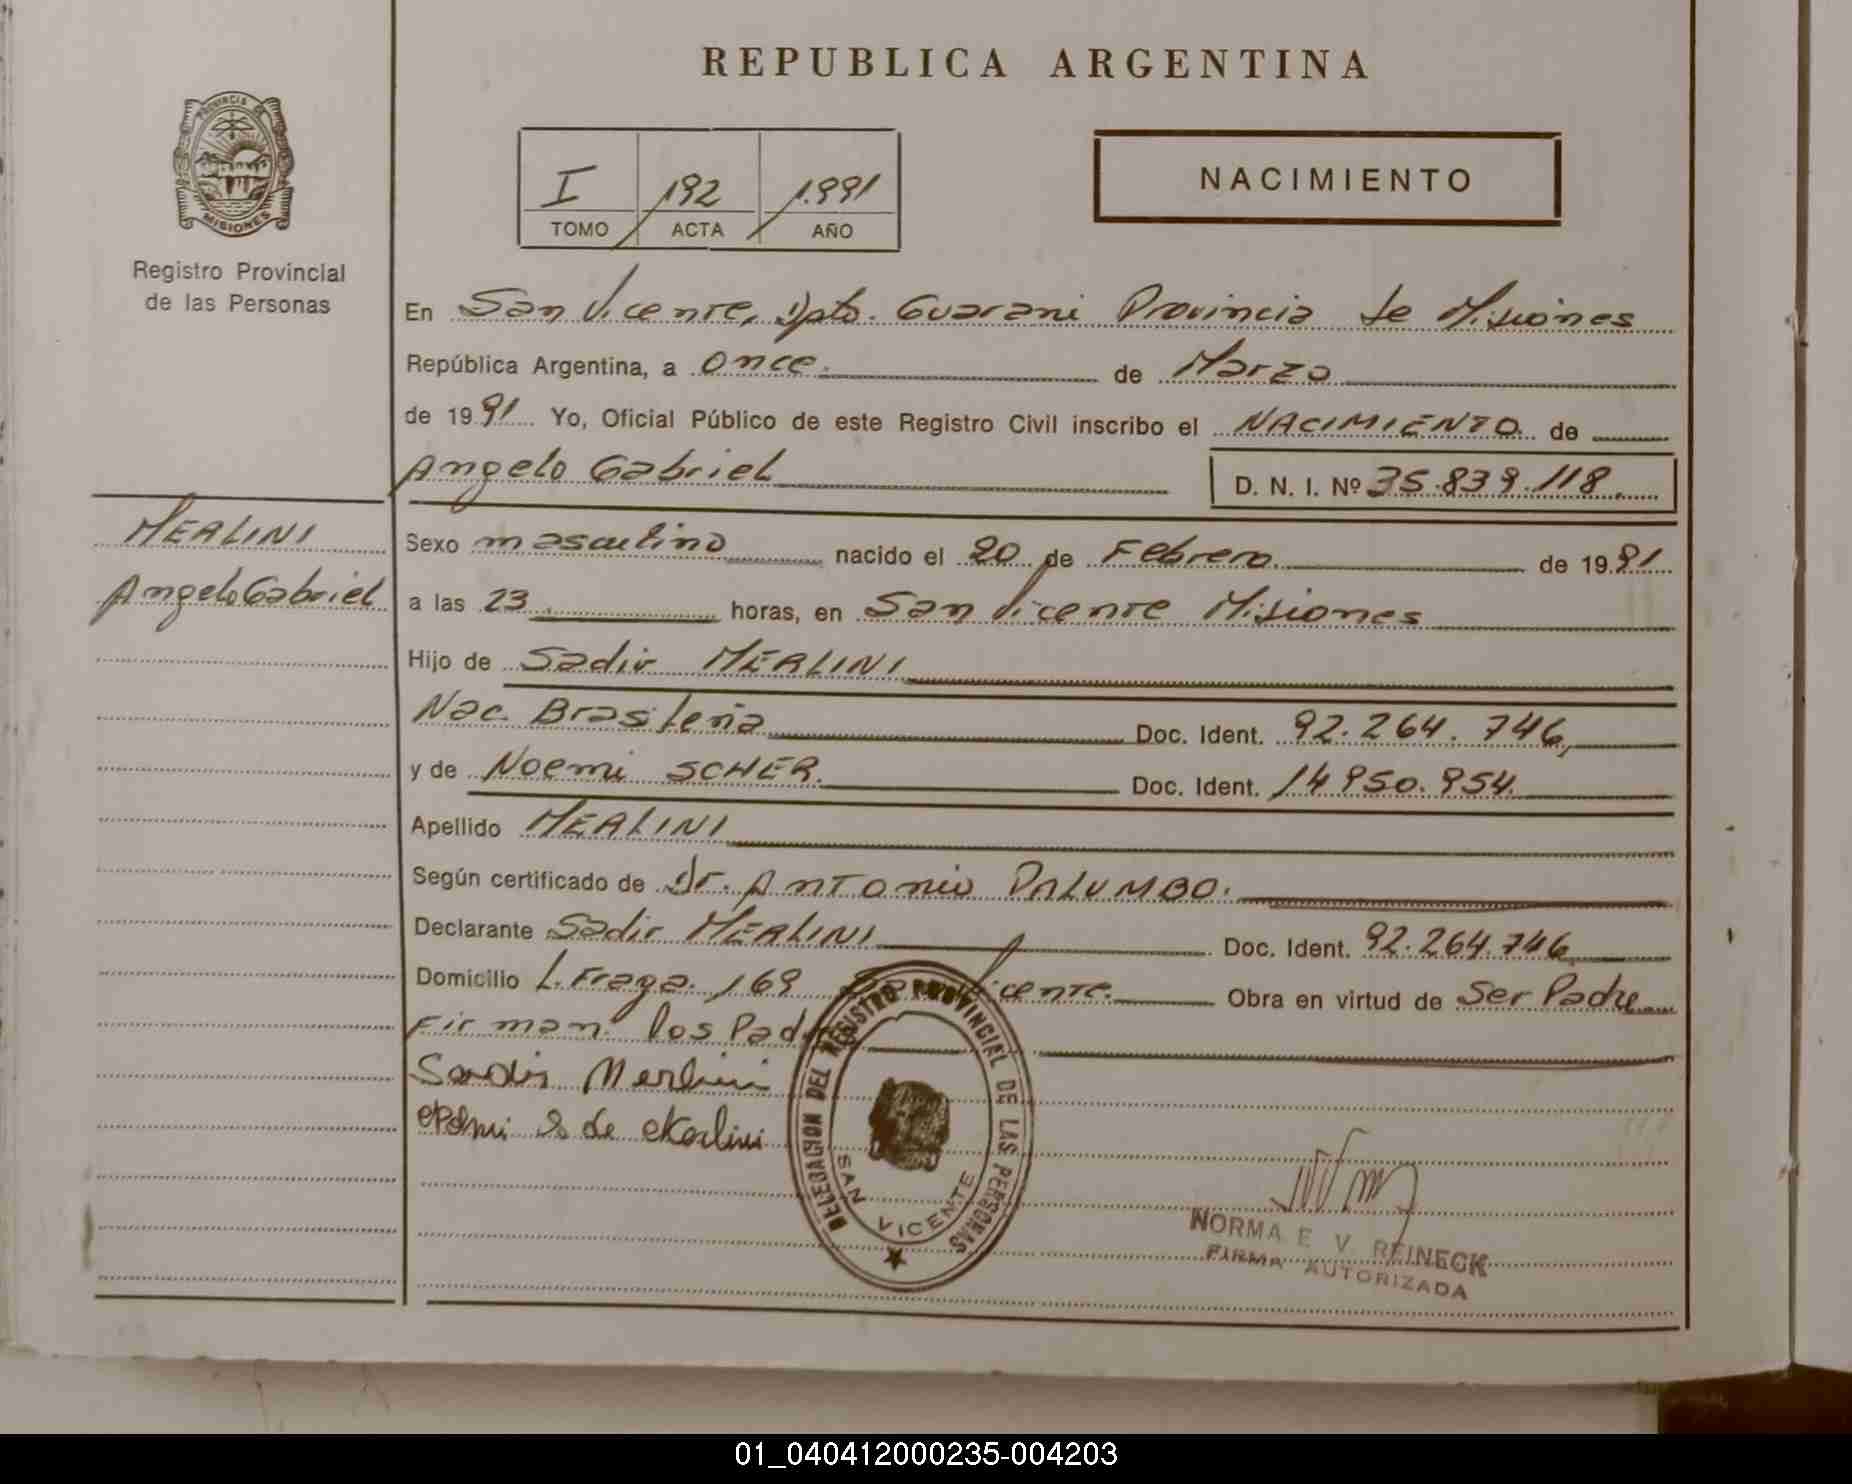 REPUBLICA ARGENTINA
PROVINCIA DE
MISIONES
Registro Provincial
de las Personas
I 192 1.991
TOMO ACTA AÑO
NACIMIENTO
En San Vicente, Dpto. Guarani Provincia de Misiones
República Argentina, a once. de Marzo
de 1991 Yo, Oficial Público de este Registro Civil inscribo el NACIMIENTO de
Angelo Gabriel D. N. I. Nº 35.839.118
MERLINI
Angelo Gabriel
Sexo masculino nacido el 20 de Febrero de 1991
a las 23 horas, en San Vicente Misiones
Hijo de Sadir MERLINI
Nac. Brasileña Doc. Ident. 92.264.746,
y de Noemi SCHER. Doc. Ident. 14950.954.
Apellido MERLINI
Según certificado de Dr. Antonio PALUMBO.
Declarante Sadir MERLINI Doc. Ident. 92.264.746
Domicilio L. Fraga. 169 San Vicente. Obra en virtud de Ser Padre
Firman los Padres
Sadir Merlini
S de Merlini
DELEGACION DEL REGISTRO PROVINCIAL DE LAS PERSONAS
SAN VICENTE
NORMA E V REINECK
FIRMA AUTORIZADA
01_040412000235-004203